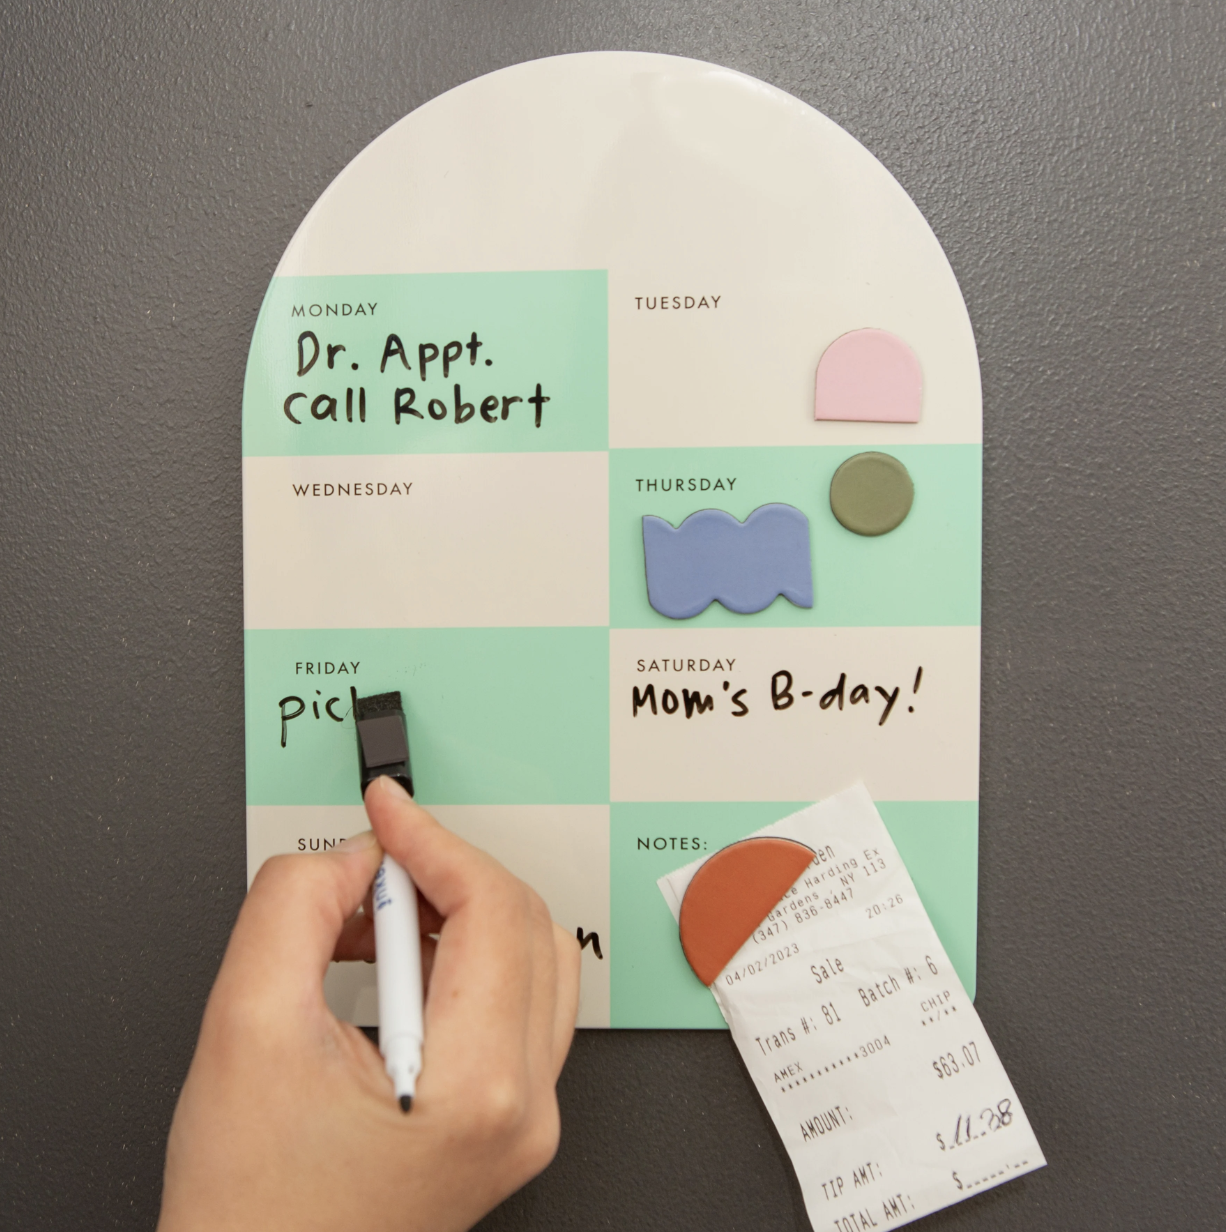 MONDAY
Dr. Appt.
call Robert
TUESDAY
WEDNESDAY
THURSDAY
FRIDAY
SATURDAY
Mom's B-day!
NOTES:
Harding Ex
Gardens, NY 113
(347) 836-8447
04/02/2023 20:26
Sale
Trans #: 81 Batch #: 6
AMEX CHIP
***********3004 **/**
AMOUNT: $63.07
TIP AMT: $
TOTAL AMT: $